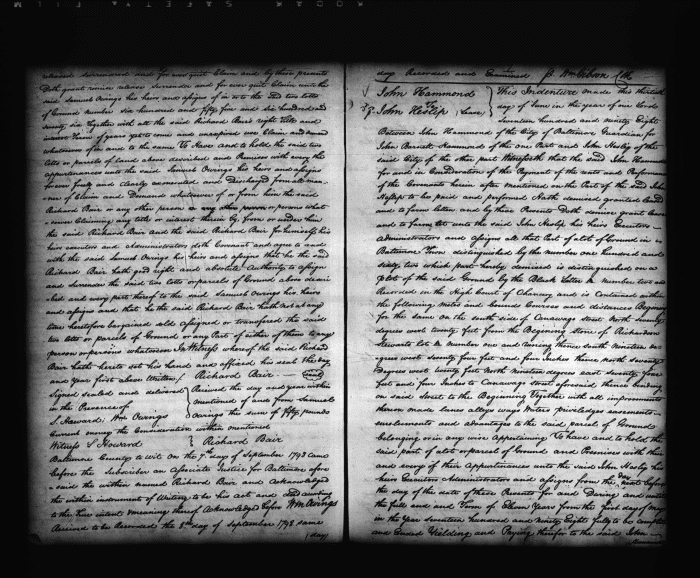 released surrendered and for ever quit Claim and by these presents
Doth grant remise release Surrender and for ever quit Claim unto the
said Samuel Owings his heirs and assigns the said two lotts
of Ground number six hundred and fifty five and six hundred and
seventy six Together with all the said Richard Bair's right Title and
interest Term of years yet to come and unexpired use Claim and demand
whatsoever of in and to the same To Have and to hold the said two
lotts or parcels of land above described and Premises with every the
appurtenances unto the said Samuel Owings his heirs and assigns
for ever freely and clearly exonerated and Discharged from all man-
ner of Claim and Demands whatsoever of or from him the said
Richard Bair or any other person or any other person or persons what
soever Claiming any title or interest therein by from or under him
the said Richard Bair and the said Richard Bair for himself his
heirs executors and Administrators doth Covenant and agree to and
with the said Samuel Owings his heirs and assigns that he the said
Richard Bair hath good right and absolute Authority to assign
and surrender the said two lotts or parcels of Ground above descri-
bed and every part thereof to the said Samuel Owings his heirs
and assigns and that he the said Richard Bair hath not at any
time heretofore bargained sold assigned or transferred the said
two lotts or parcels of Ground or any Part of either of them to any
person or persons whatsoever In Witness whereof the said Richard
Bair hath hereto set his hand and affixed his seal the day
and year first above Written / Richard Bair seal
Signed sealed and delivered } Received the day and year within
in the Presence of } mentioned of and from Samuel
S. Howard, Wm Owings } Owings the sum of fifty pounds
Current money the Consideration within mentioned
Witness S Howard } Richard Bair
Baltimore County to wit On the 7th day of September 1798 Came
before the Subscriber an Associate Justice for Baltimore afore
said the within named Richard Bair and Acknowledged
the within instrument of Writing to be his act and deed according
to the true intent meaning thereof Acknowledged before Wm Owings
Received to be Recorded the 8th day of September 1798 same
(day)
day Recorded and Examined p. Wm Gibson Clk
John Hammond } This Indenture made this thirtieth
To } day of June in the year of our Lord
John Heslip, Lease } seventeen hundred and ninety Eight
Between John Hammond of the City of Baltimore Guardian for
John Barnett Hammond of the one Part and John Heslip of the
said City of the other part Witnesseth that the said John Hammond
for and in Consideration of the Payment of the rents and Performance
of the Covenants herein after mentioned on the Part of the said John
Heslip to be paid and performed Hath demised granted leased
and to farm letten and by these Presents Doth demise grant lease
and to farm let unto the said John Heslip his heirs Executors
Administrators and assigns all that Part of a lot of Ground in
Baltimore Town distinguished by the number one hundred and
sixty two which part hereby demised is distinguished on a
plot of the said Ground by the Black letter A number two and
Recorded in the High Court of Chancery and is Contained within
the following Metes and bounds Courses and distances Beginning
for the same on the south side of Conawago street North Seventy
degrees west twenty feet from the Begining stone of Richardson
Stewarts lot A number one and runing thence South Nineteen de-
grees west seventy four feet and four Inches thence north seventy
degrees west twenty feet North nineteen degrees east seventy four
feet and four Inches to Conawago street aforesaid thence binding
on said Street to the Beginning Together with all improvements
thereon made lanes alleys ways Waters priviledges easements
emoluments and advantages to the said parcel of Ground
belonging or in any wise appertaining To have and to hold the
said part of a lot or parcel of Ground and Premises with their
and every of their Appurtenances unto the said John Heslip his
heirs Executors Administrators and assigns from the Day next before
the day of the date of these Presents for and During and untill
the full end and Term of Eleven Years from the first day of May
in the Year seventeen hundred and Ninety Eight fully to be complete
and Ended Yielding and Paying therefor to the said John